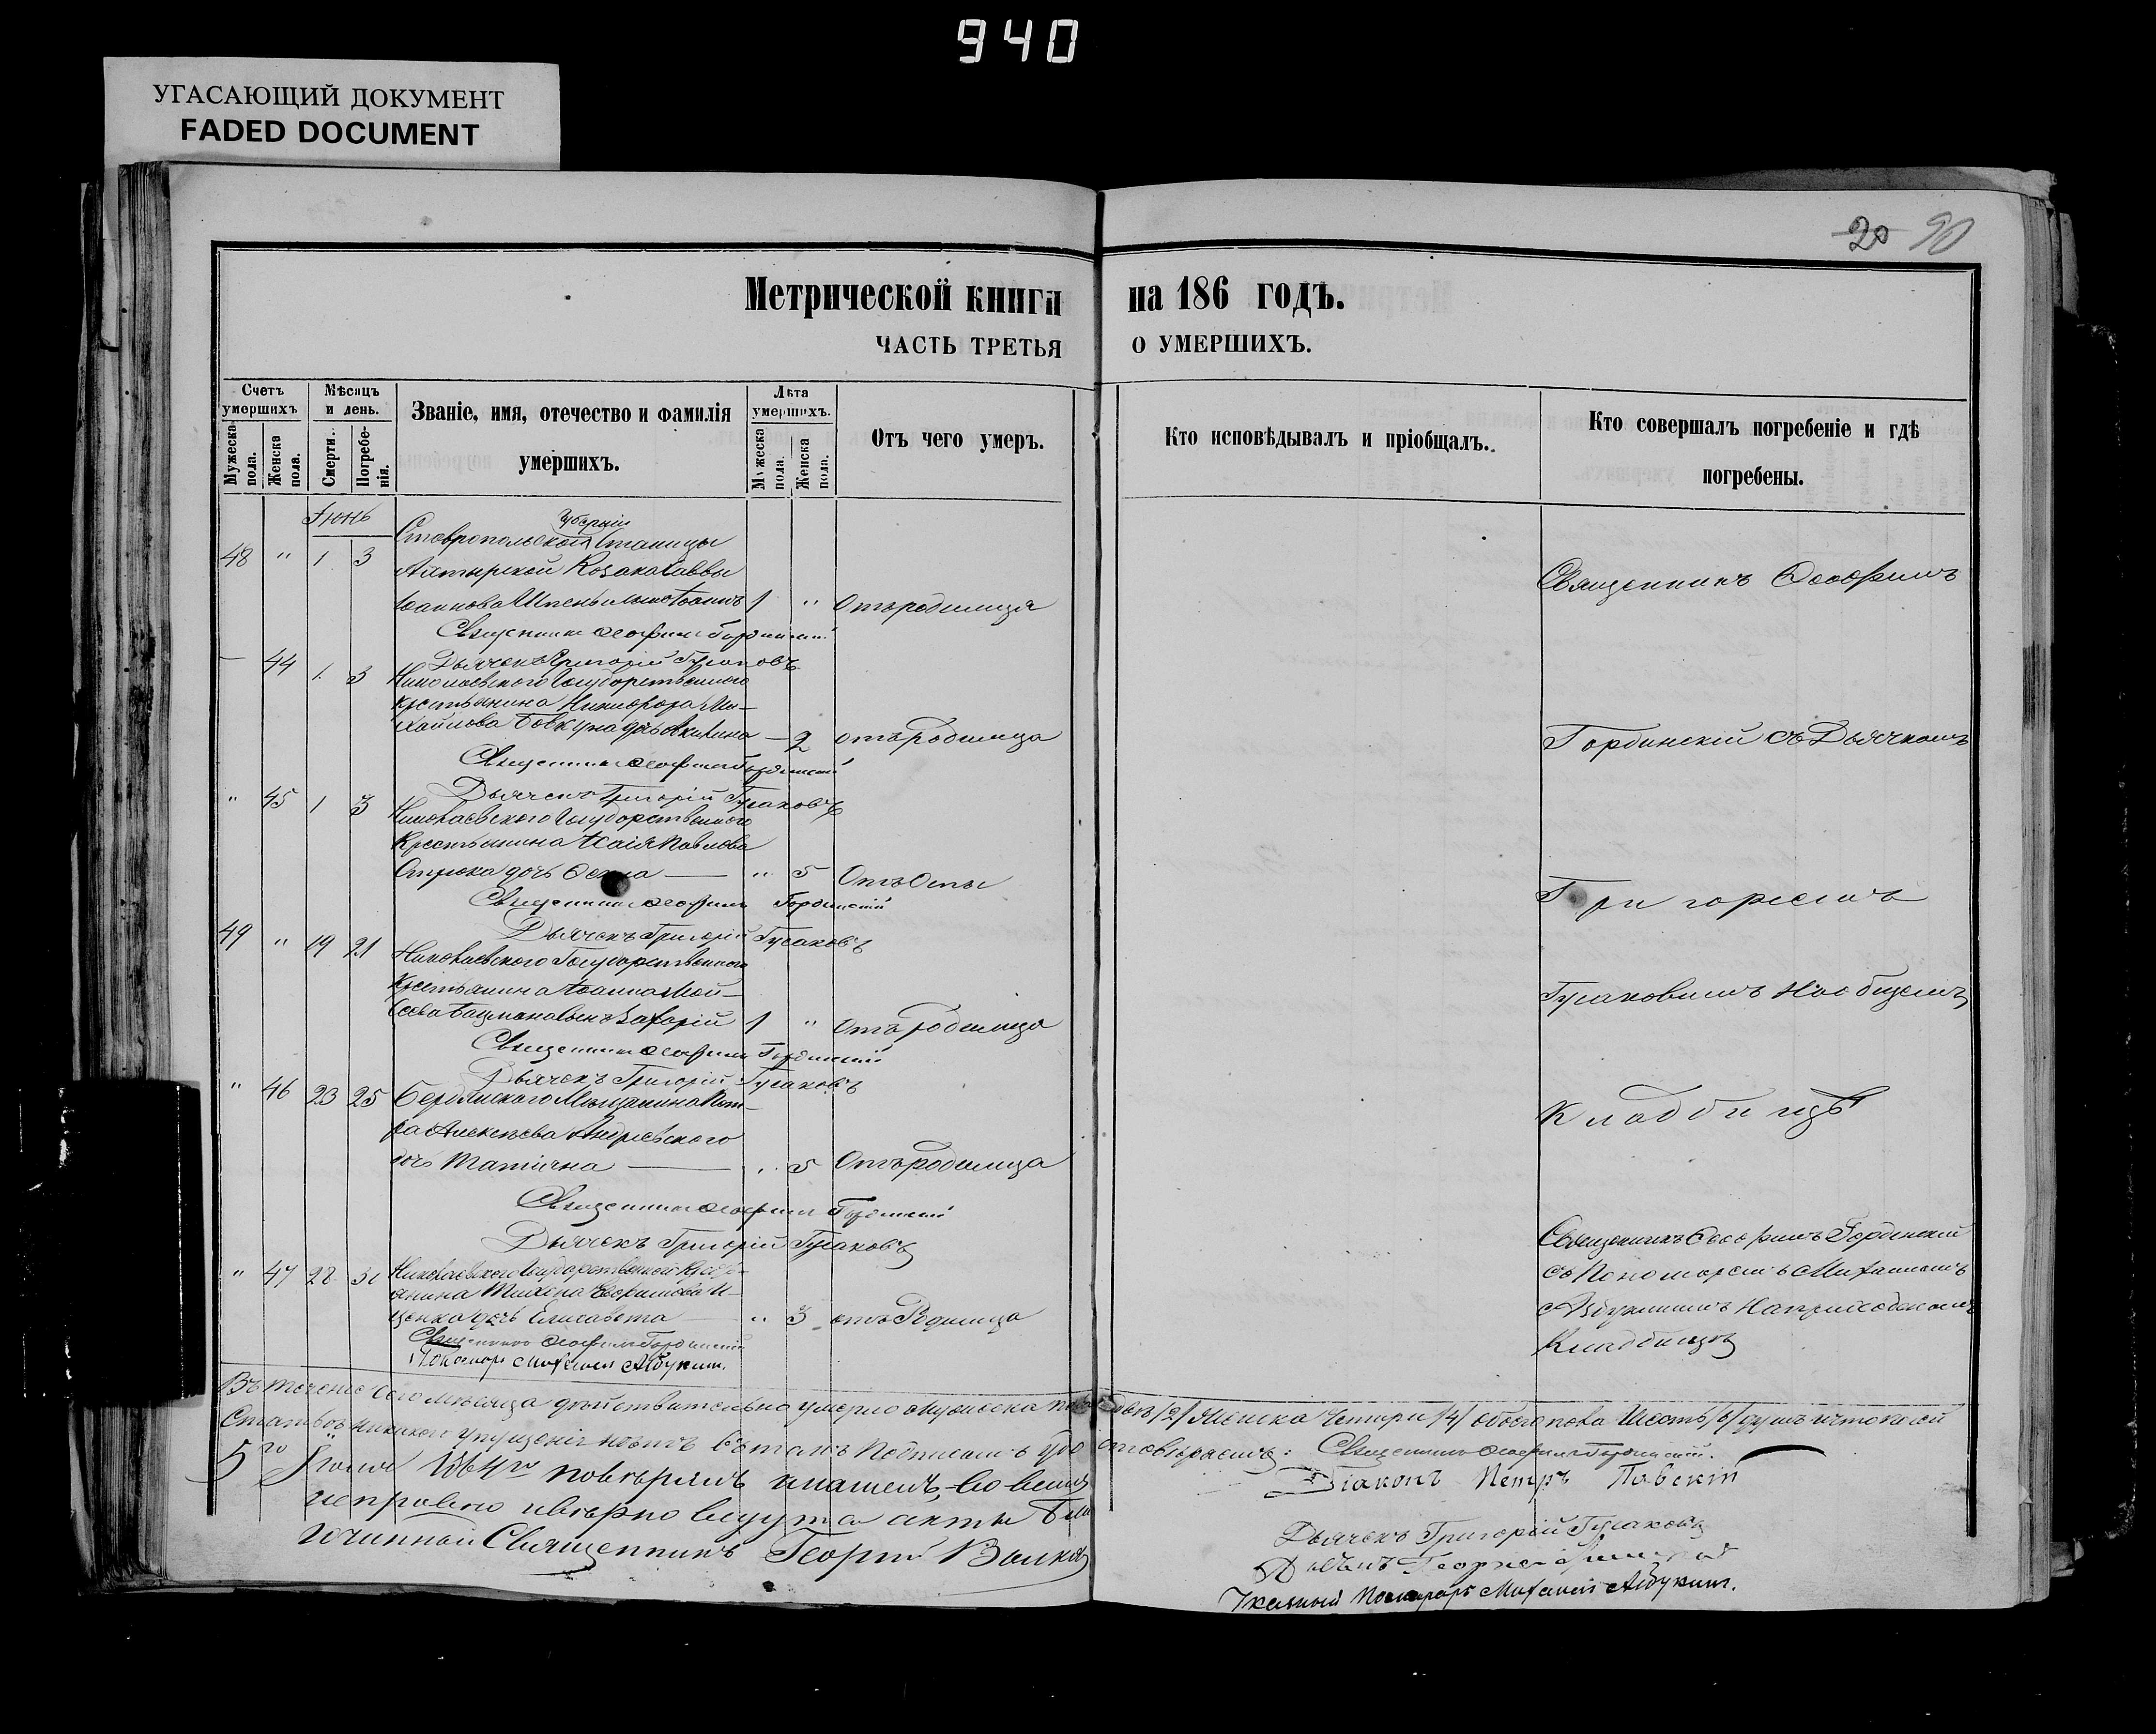 940
УГАСАЮЩИЙ ДОКУМЕНТ
FADED DOCUMENT
20 90
Метрической книги на 186 годъ.
ЧАСТЬ ТРЕТЬЯ О УМЕРШИХЪ.
Счетъ умершихъ
Мужеска пола.
Женска пола.
Мѣсяцъ и день.
Смерти.
Погребенія.
Званіе, имя, отечество и фамилія умершихъ.
Лѣта умершихъ.
Мужеска пола.
Женска пола.
Отъ чего умеръ.
Кто исповѣдывалъ и пріобщалъ.
Кто совершалъ погребеніе и гдѣ погребены.
Іюнь
губерніи
Ставропольской Станицы
48 " 1 3 Ахтырской Козака Саввы
Іоаннова Іоаннъ 1 " Отъ родимца
Священникъ Ѳеофилъ Гординскій
Дьячекъ Григорій Гусаковъ
— 44 1 3 Николаевского Государственного
крестьянина Никифора Ми-
хайлова дочь Акилина — 2 отъ Родимца
Священникъ Ѳеофилъ Гординскій
Дьячекъ Григорій Гусаковъ
" 45 1 3 Николаевского Государственного
Крестьянина Исаія Павлова
дочь — " 5 Отъ Оспы
Священникъ Ѳеофилъ Гординскій
Дьячекъ Григорій Гусаковъ
49 " 19 21 Николаевского Государственного
Крестьянина Іоанна Мой-
сеева сынъ Захарій 1 " Отъ Родимца
Священникъ Ѳеофилъ Гординскій
Дьячекъ Григорій Гусаковъ
" 46 23 25 Бердянского Мѣщанина Пет-
ра Алексѣева Андріевского
дочь Татіяна — " 5 Отъ родимца
Священникъ Ѳеофилъ Гординскій
Дьячекъ Григорій Гусаковъ
" 47 28 30 Николаевского Государственного Кресть-
янина
дочь Елисавета — " 3 отъ Родимца
Священникъ Ѳеофилъ Гординскій
Пономарь Михаилъ Абукинъ.
Священникъ Ѳеофилъ
Гординскій съ Дьячкомъ
Григоріемъ
Гусаковымъ На общемъ
Кладбищѣ
Священникъ Ѳеофилъ Гординскій
съ Пономаремъ Михаиломъ
Абукинымъ На приходскомъ
Кладбищѣ
Въ теченіе сего мѣсяца дѣйствительно умерло мужеска пола два /2/ Женска Четыри /4/ обоего пола Шесть /6/ душъ и что по сей
Статьѣ никакого упущенія нѣтъ въ томъ Подписомъ удостовѣряемъ: Священникъ Ѳеофилъ Гординскій.
Діаконъ Петръ Павскій
Дьячекъ Григорій Гусаковъ
Указный Пономарь Михаилъ Абукинъ.
5го Іюля 1864го повѣрялъ и нашелъ, что
исправно и вѣрно ведутся акты Бла-
гочинный Священникъ Георгій